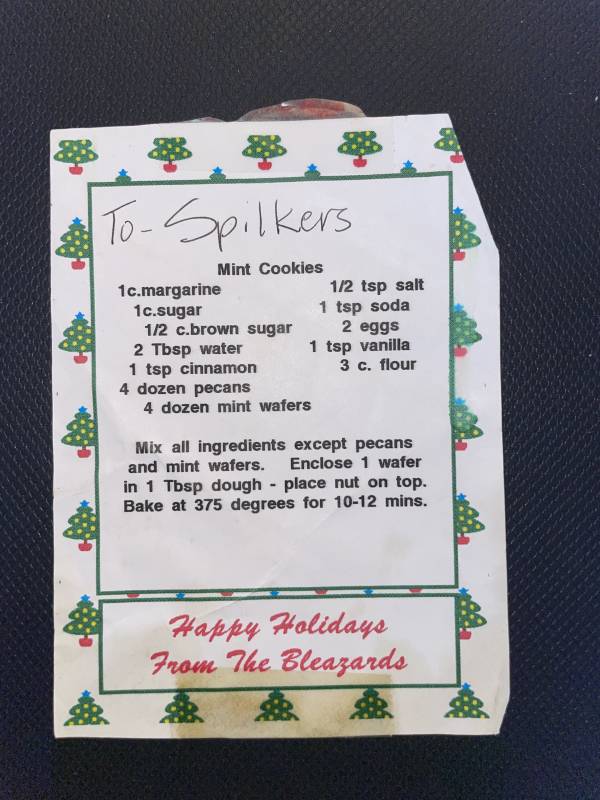 To - Spilkers
Mint Cookies
1c.margarine 1/2 tsp salt
1c.sugar 1 tsp soda
1/2 c.brown sugar 2 eggs
2 Tbsp water 1 tsp vanilla
1 tsp cinnamon 3 c. flour
4 dozen pecans
4 dozen mint wafers
Mix all ingredients except pecans
and mint wafers. Enclose 1 wafer
in 1 Tbsp dough - place nut on top.
Bake at 375 degrees for 10-12 mins.
Happy Holidays
From The Bleazards